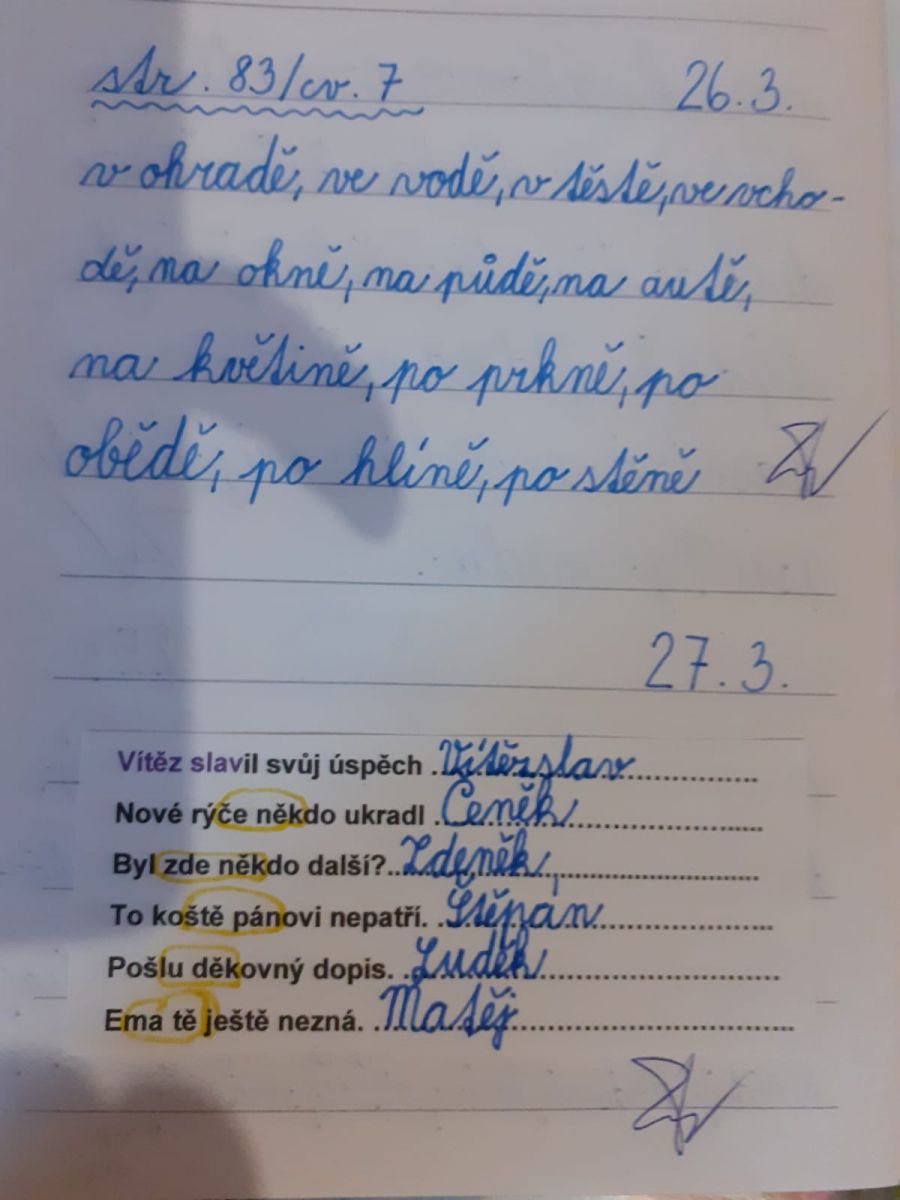 str. 83/cv. 7 26.3.
v ohradě, ve vodě, v těstě, ve vcho-
dě, na okně, na půdě, na autě,
na květině, po prkně, po
obědě, po hlíně, po stěně
27.3.
Vítěz slavil svůj úspěch .Vítězslav..................
Nové rýče někdo ukradl .Čeněk..................
Byl zde někdo další?..Zdeněk..................
To koště pánovi nepatří. .Štěpán..................
Pošlu děkovný dopis. .Luděk..................
Ema tě ještě nezná. .Matěj..................